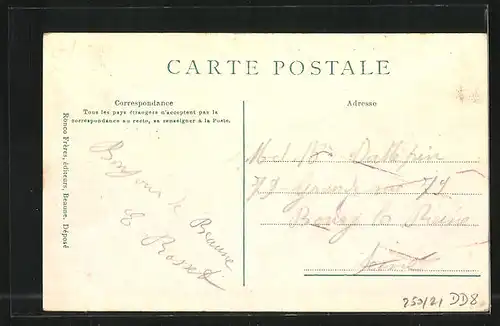 CARTE POSTALE
Correspondance
Tous les pays étrangers n'acceptent pas la
correspondance au recto, se renseigner à la Poste.
Adresse
Ronco Frères, éditeurs, Beaune. Déposé
Bonjour de Beaune
E Rosset
79
Bourg la Reine
Seine
250/21 DD8